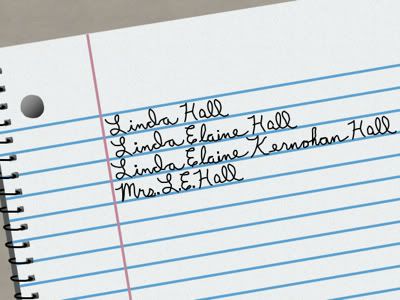 Linda Hall
Linda Elaine Hall
Linda Elaine Kernohan Hall
Mrs. L.E. Hall